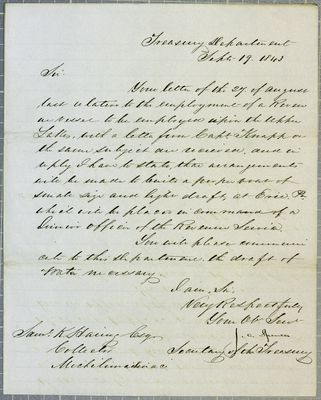 Treasury Department
Sept. 19. 1843
Sir:
Your letter of the 29 of August
last relation to the employment of a Reven
ue vessel to be employed upon the Upper
Lakes, with a letter from Capt Knapp on
the same subject are received, and in
reply I have to state, that arrangements
will be made to build a proper boat of
small size and light draft, at Erie, Pa
which will be placed in command of a
Junior officer of the Revenue Service.
You will please communi
cate to this Department the draft of
water necessary.
I am, Sir,
Very Respectfully
Your Ob Sevt
Secretary of the Treasury
Saml. K. Haring Esqr
Collector
Michilimackinac